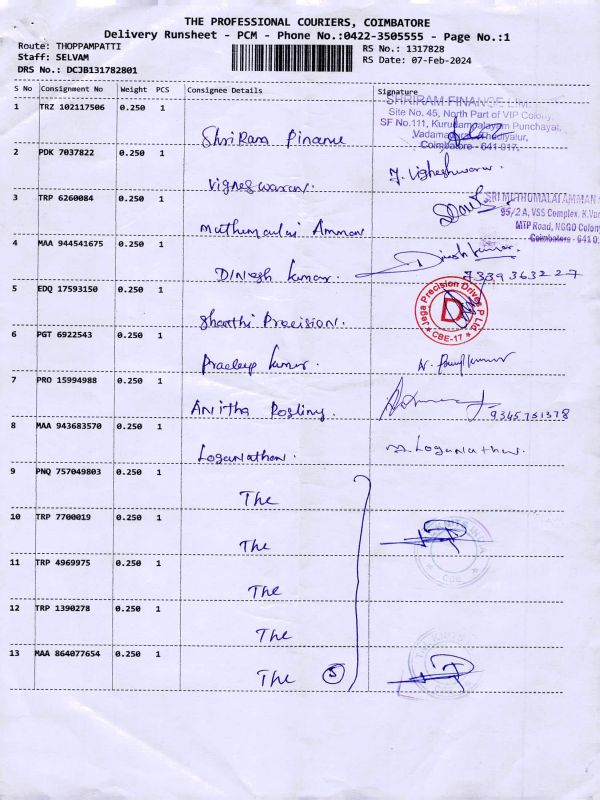 THE PROFESSIONAL COURIERS, COIMBATORE
Delivery Runsheet - PCM - Phone No.:0422-3505555 - Page No.:1
Route: THOPPAMPATTI RS No.: 1317828
Staff: SELVAM RS Date: 07-Feb-2024
DRS No.: DCJB131782801
S No Consignment No Weight PCS Consignee Details Signature
1 TRZ 102117506 0.250 1 Shri Ram Finance
SHRIRAM FINANCE LIMI
Site No. 45, North Part of VIP Colony,
SF No.111, Kurudampalayam Punchayat,
Vadamadurai, Thudiyalur,
Coimbatore - 641 017.
2 PDK 7037822 0.250 1 Vigneswaran. J. Vigheshwaran
3 TRP 6260084 0.250 1 Muthumalai Amman
SRI MUTHUMALAI AMMAN
95/2 A, VSS Complex, K.Va
MTP Road, NGGO Colony
Coimbatore - 641 0
4 MAA 944541675 0.250 1 Dinesh Kumar. Dineshkumar.
7339363227
5 EDQ 17593150 0.250 1 Shanthi Precision.
Jega Precision Drives P Ltd
D
CBE-17
6 PGT 6922543 0.250 1 Pradeep Kumar.
7 PRO 15994988 0.250 1 Anitha Rosliny 9345751378
8 MAA 943683570 0.250 1 Loganathan. Loganathan.
9 PNQ 757049803 0.250 1 The
10 TRP 7700019 0.250 1 The
CBE
11 TRP 4969975 0.250 1 The
12 TRP 1390278 0.250 1 The
13 MAA 864077654 0.250 1 The 5